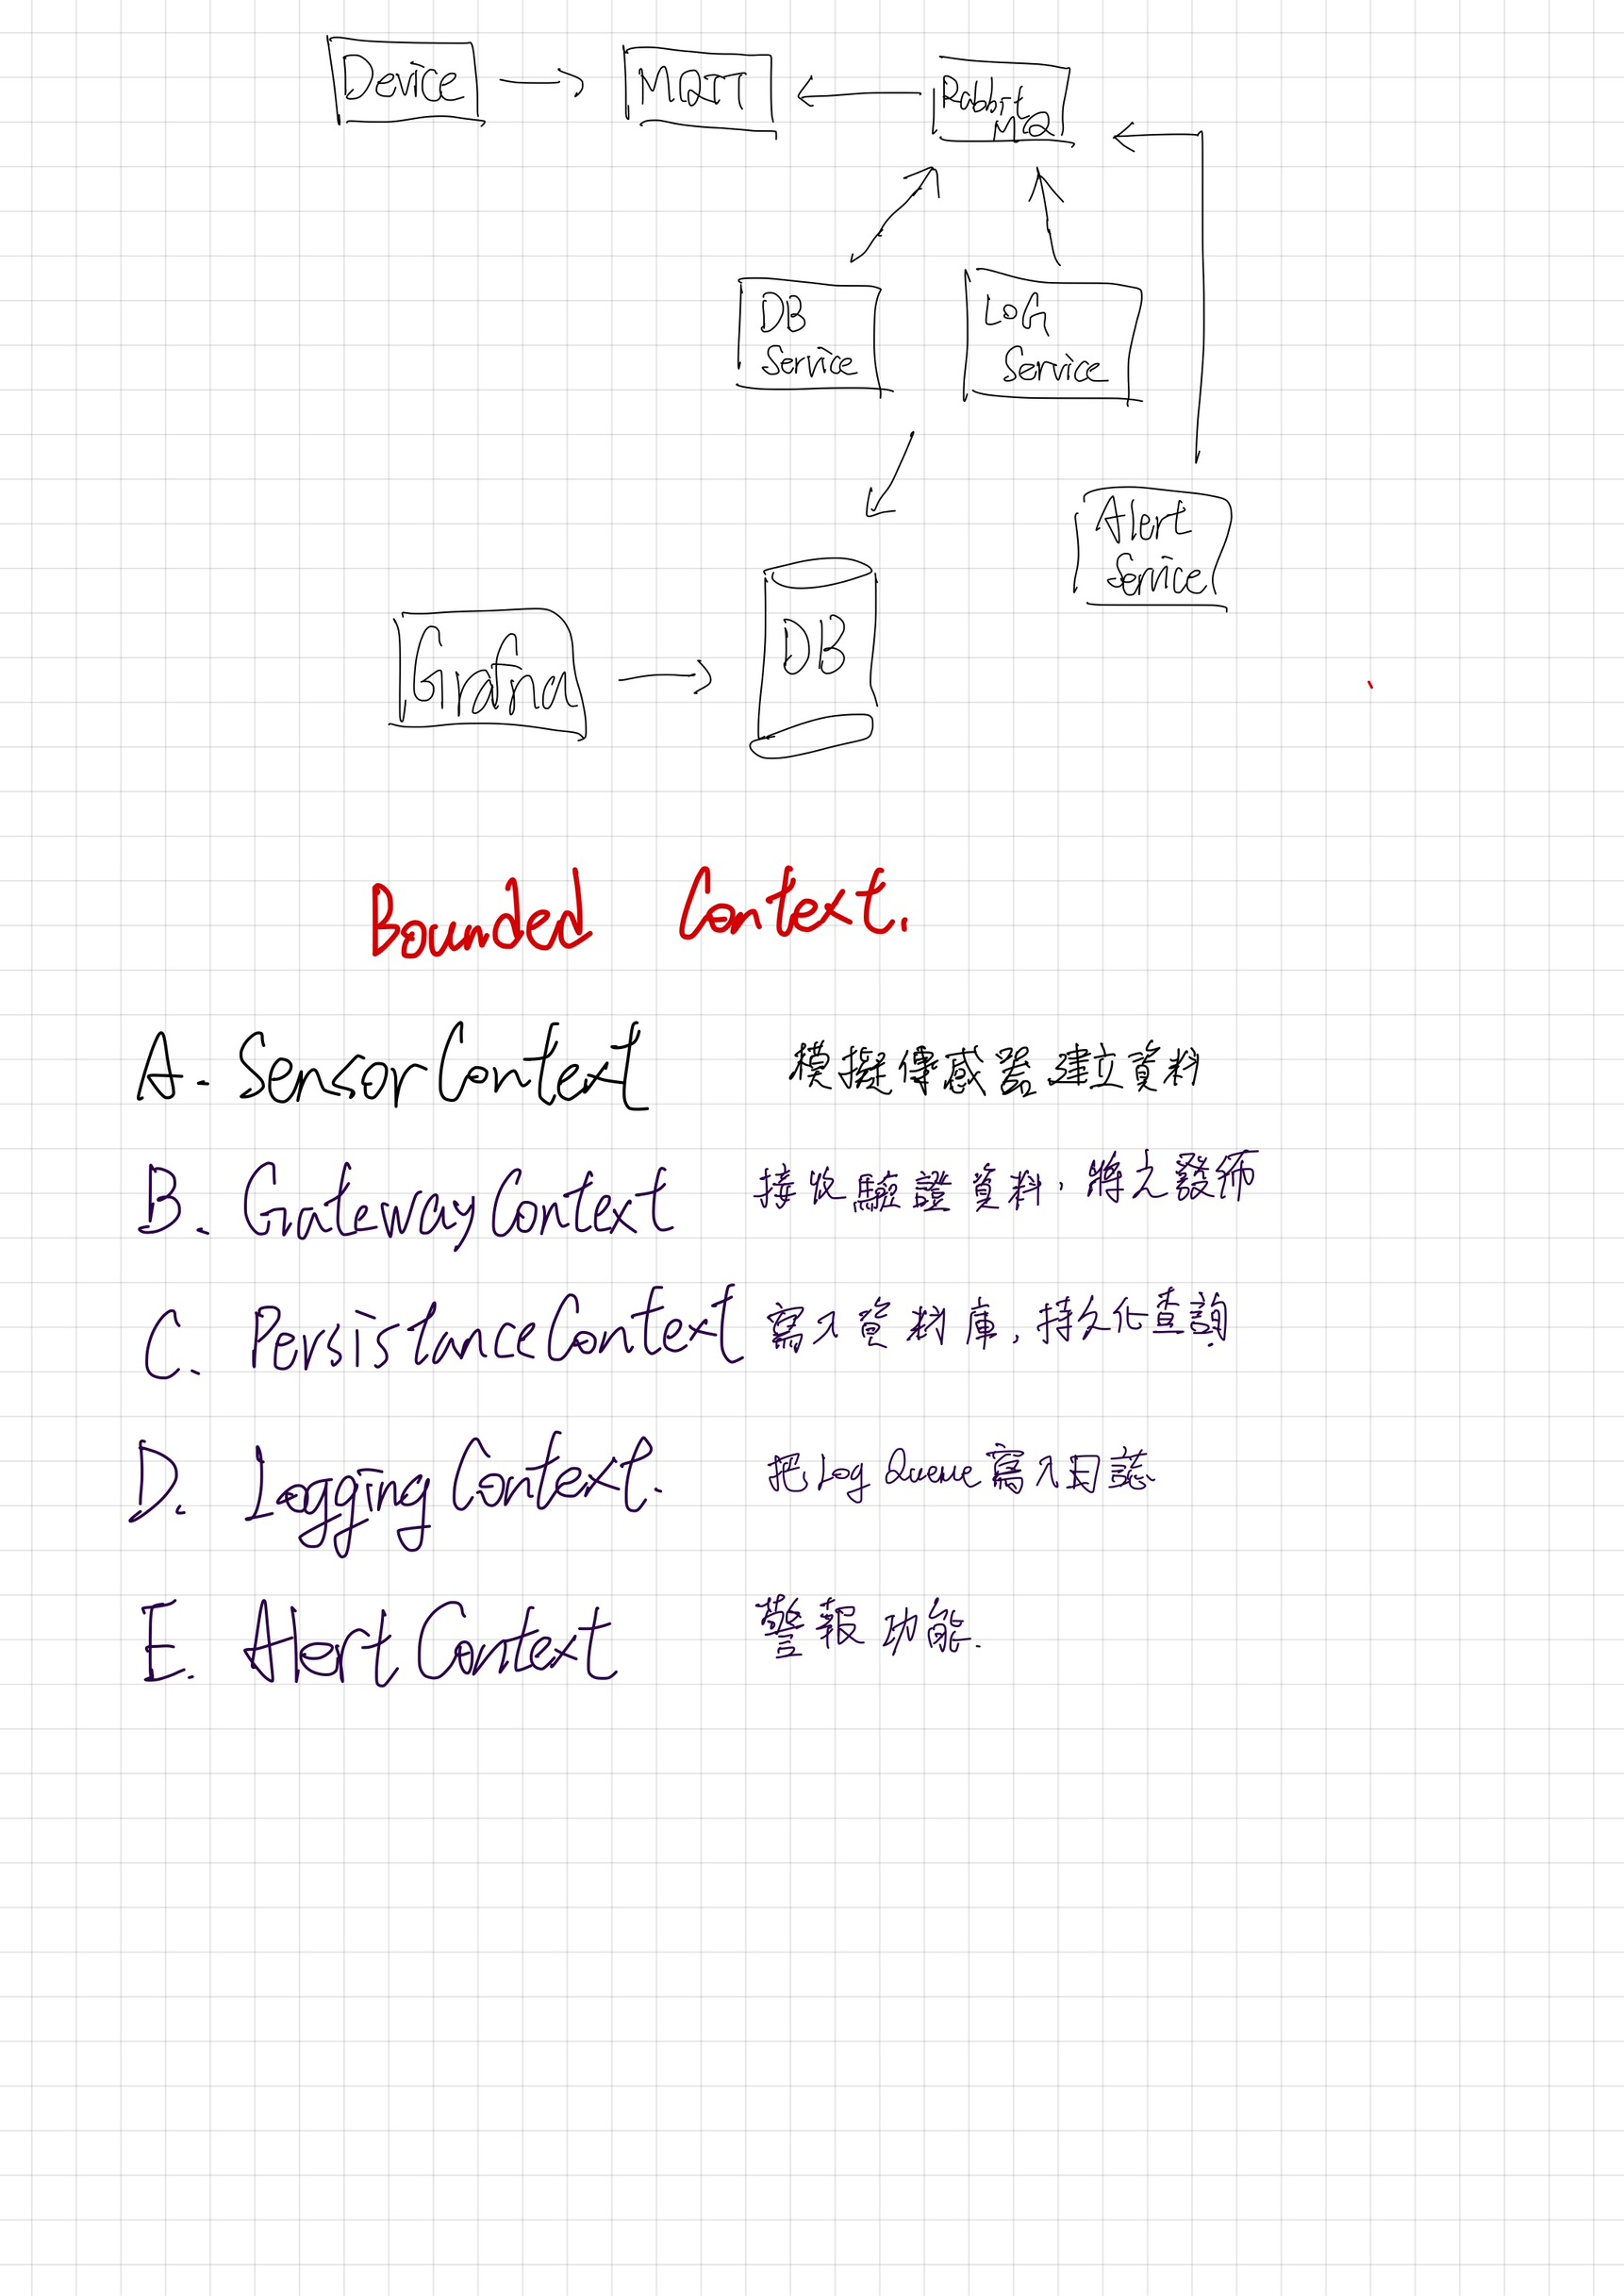 Device
MQTT
Rabbit
MQ
DB
Service
LOG
Service
Alert
Service
Grafna
DB
Bounded Context.
A. SensorContext 模擬傳感器建立資料
B. GatewayContext 接收驗證資料，將之發佈
C. PersistanceContext 寫入資料庫，持久化查詢
D. LoggingContext. 把Log Queue寫入日誌
E. AlertContext 警報功能.